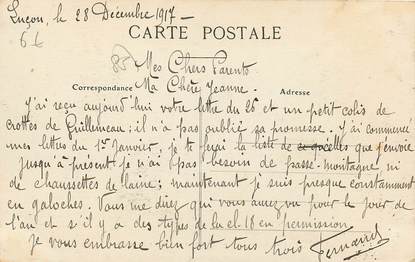 Luçon, le 28 Décembre 1917-
6f
CARTE POSTALE
(85) Mes Chers Parents
Correspondance Ma Chère Jeanne. Adresse
J'ai reçu aujourd'hui votre lettre du 26 et un petit colis de
crottes de Guillemeau; il n'a pas oublié sa promesse. J'ai commencé
mes lettres du 1er Janvier, je te ferai la liste de celles que j'envoie
jusqu'à présent je n'ai pas besoin de passe-montagne ni
de chaussettes de laine; maintenant je suis presque constamment
en galoches. Vous me direz qui vous aurez vu pour le jour de
l'an et s'il y a des types de la cl. 18 en permission.
Je vous embrasse bien fort tous trois Fernand